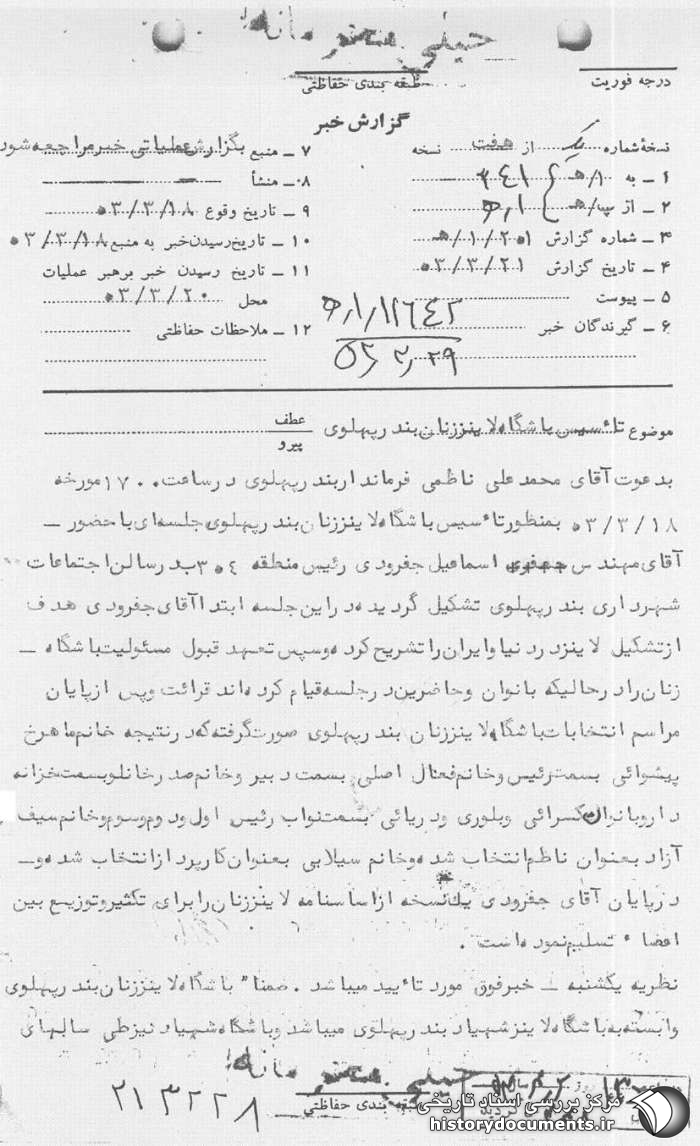 خیلی محرمانه
درجه فوریت
طبقه بندی حفاظتی
گزارش خبر
نسخهٔ شماره یک از هفت نسخه
۱ ـ به ۱/ه‍ ۳۴۱
۲ ـ از /ه‍
۳ ـ شماره گزارش ه‍/۱/۲۰۱
۴ ـ تاریخ گزارش ۵۳/۳/۲۱
۵ ـ پیوست
۶ ـ گیرندگان خبر
۷ ـ منبع بگزارش عملیاتی خبر مراجعه شود
۸ ـ منشأ
۹ ـ تاریخ وقوع ۵۳/۳/۱۸
۱۰ ـ تاریخ رسیدن خبر به منبع ۵۳/۳/۱۸
۱۱ ـ تاریخ رسیدن خبر برهبر عملیات
محل ۵۳/۳/۲۰
۱۲ ـ ملاحظات حفاظتی
موضوع تاٴسیس باشگاه لاینززنان بندرپهلوی
عطف
پیرو
بدعوت آقای محمدعلی ناظمی فرمانداربندرپهلوی درساعت ۱۷۰۰ مورخه
۵۳/۳/۱۸ بمنظورتاٴسیس باشگاه لاینززنان بندرپهلوی جلسه‌ای باحضور ـ
آقای مهندس اسماعیل جفرودی رئیس منطقه ۳۵۴ بدرسالن اجتماعات
شهرداری بندرپهلوی تشکیل گردیده دراین جلسه ابتدا آقای جفرودی هدف
ازتشکیل لاینزدردنیا وایران را تشریح کرده وسپس تعهد قبول مسئولیت باشگاه ـ
زنان رادرحالیکه بانوان وحاضرین درجلسه قیام کرده‌اند قرائت وپس ازپایان
مراسم انتخابات باشگاه لاینززنان بندرپهلوی صورت گرفته که درنتیجه خانم ماهرخ
پیشوائی بسمت رئیس وخانم فعال اصلی بسمت دبیر وخانم صدرخانلو بسمت خزانه
داروبانوان کسرائی وبلوری ودریائی بسمت نواب رئیس اول ودوم وسوم وخانم سیف
آزاد بعنوان ناظم انتخاب شده وخانم سیلابی بعنوان کارپردازانتخاب شده و ـ
درپایان آقای جفرودی یک نسخه ازاساسنامه لاینززنان را برای تکثیروتوزیع بین
اعضاء تسلیم نموده است .
نظریه یکشنبه ـ خبرفوق مورد تاٴیید میباشد . ضمناً باشگاه لاینززنان بندرپهلوی
وابسته به باشگاه لاینزشهیاد بندرپهلوی میباشد وباشگاه شهیاد نیزطی سالهای
خیلی محرمانه
طبقه بندی حفاظتی
۲۱۳۲۲۸
مرکز بررسی اسناد تاریخی
historydocuments.ir